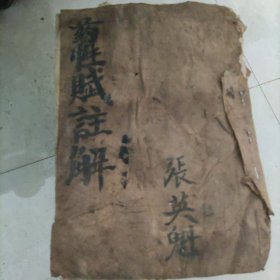 藥性賦註解
張英魁